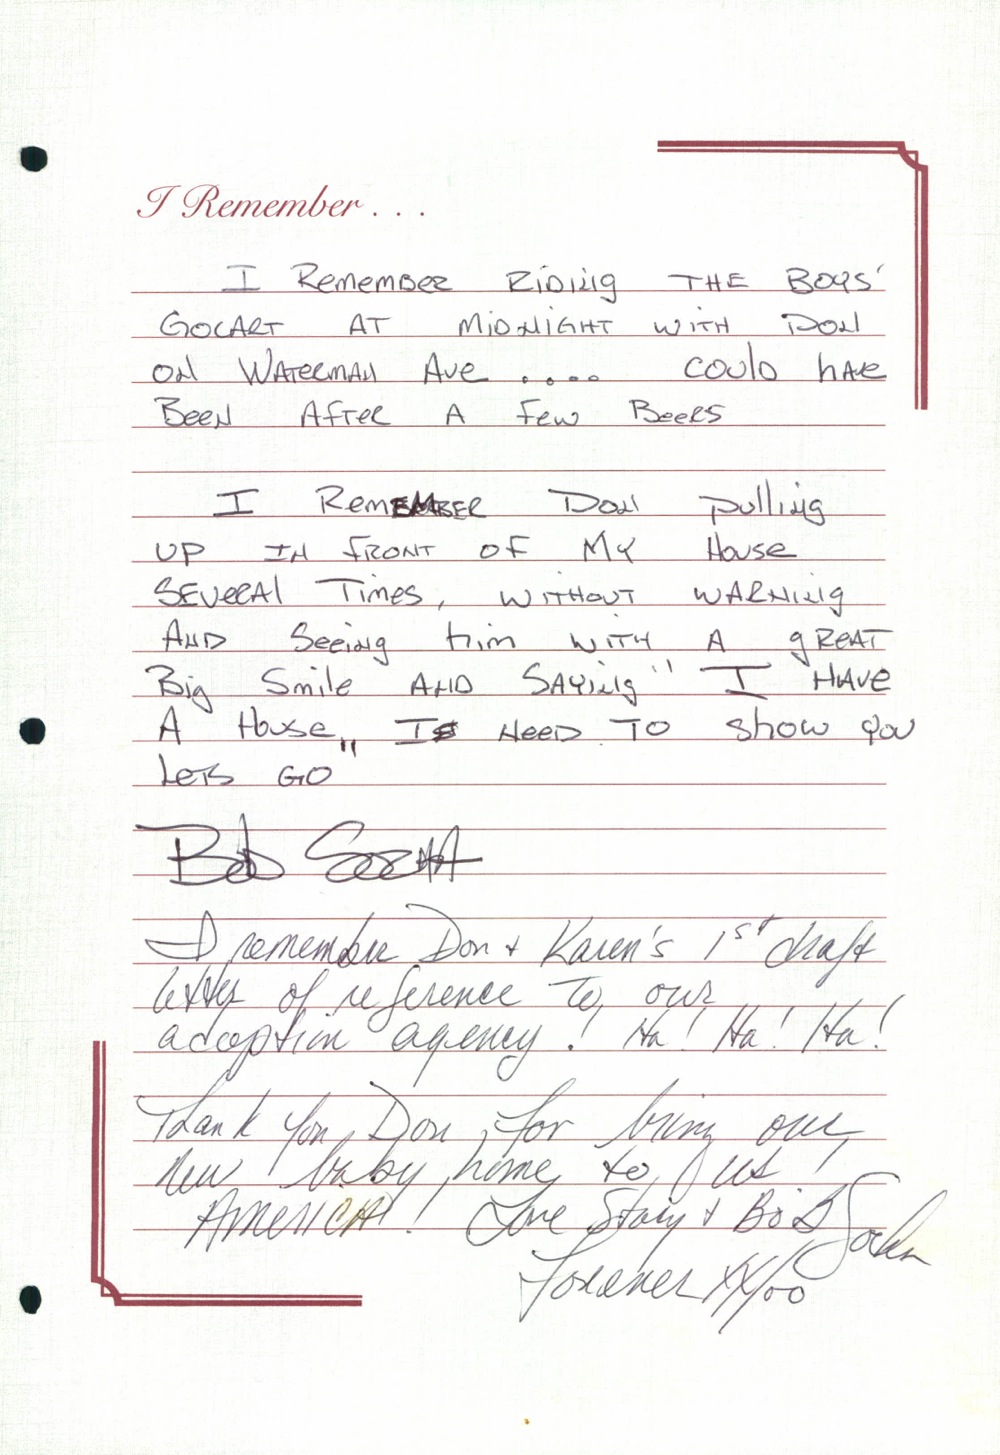 I Remember . . .
I Remember Riding THE Boys'
Gocart AT Midnight with Don
on Waterman Ave .... could have
Been After A Few Beers
I Remember Don pulling
up in front of My House
Several Times, without warning
And Seeing him with A great
Big Smile And Saying "I Have
A House" I need to show you
Lets Go"
Bob
I remember Don + Karen's 1st draft
letter of reference to our
adoption agency! Ha! Ha! Ha!
Thank you, Don, for bring our
new baby home to us!
AMERICA! Love Stacy + Bob
Forever XX/00